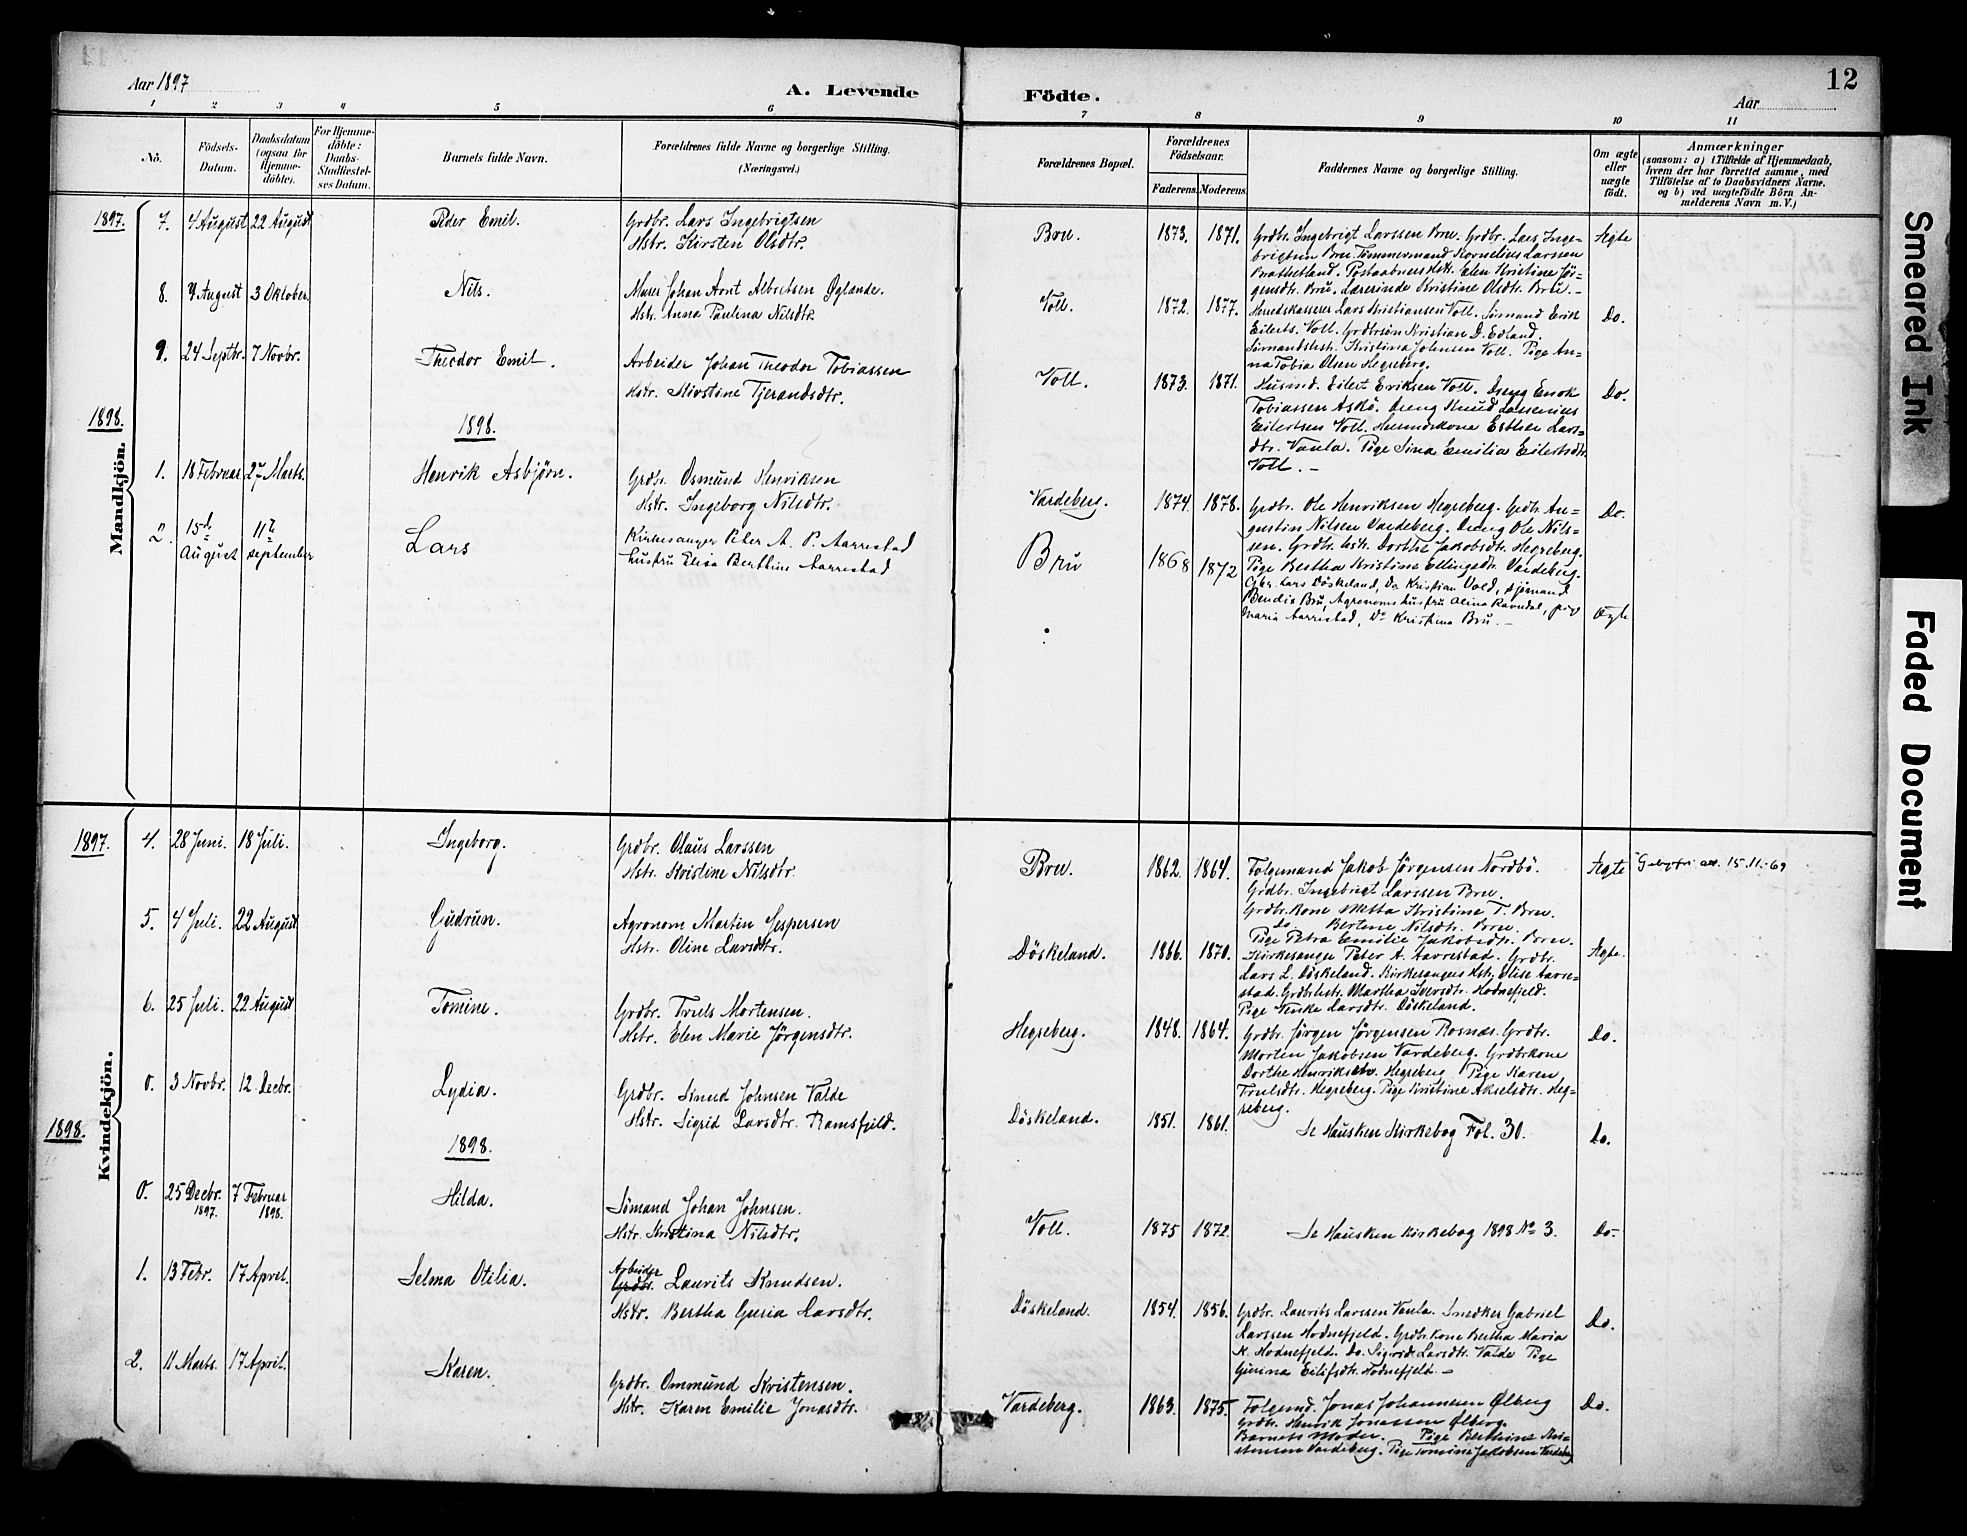 Aar 1897
A. Levende Födte.
12
Aar
1 2 3 4 5 6 7 8 9 10 11
No.
Födsels-
Datum.
Daabsdatum
(ogsaa for
Hjemme-
döbte).
For Hjemme-
döbte:
Daabs-
Stadfæstel-
ses Datum.
Barnets fulde Navn.
Forældrenes fulde Navne og borgerlige Stilling.
(Næringsvei.)
Forældrenes Bopæl.
Forældrenes
Födselsaar.
Faderens. Moderens.
Faddernes Navne og borgerlige Stilling.
Om ægte
eller
uægte
födt.
Anmærkninger
(saasom: a) i Tilfælde af Hjemmedaab,
hvem der har forrettet samme, med
Tilföielse af to Daabsvidners Navne,
og b) ved uægtefödte Börn An-
melderens Navn m. V.)
Mandkjön.
1897. 7. 4 August 22 August Peder Emil.
Grdbr. Lars Ingebrigtsen
Hstr. Kirsten Olsdtr.
Bru. 1873. 1871.
Grdbr. Ingebrigt Larssen Bru. Grdbr. Lars Inge-
brigtsen Bru. Tømmermand Kornelius Larssen
Brattetland. Postaabnershstr. Elen Kristine Jör-
gensdtr. Bru. Lærerinde Kristine Olsdtr. Bru. -
Ægte
8. August 3 Oktober. Nils.
Murer Johan Arnt Albretsen Øglænde.
Hstr. Anna Paulina Nilsdtr.
Voll. 1872. 1877.
Herredskasserer Lars Kristiansen Voll. Sömand Erik
Eilerts. Voll. Grdbrsön Kristian D. Edland.
Sömandshstr. Kristina Johnsen Voll. Pige An-
na Tobia Olsen Hegreberg.
Do.
9. 24 Septbr. 7 Novbr. Theodor Emil.
Arbeider Johan Theodor Tobiassen
Hstr. Kirstine Tjerandsdtr.
Voll. 1873. 1871.
Husmd. Eilert Eriksen Voll. Dreng Enok
Tobiassen Askö. Dreng Knud Lassenius
Eilertsen Voll. Husmdskone Esther Lars-
dtr. Vaula. Pige Sina Emilia Eilertsdtr.
Voll. -
Do.
1898.
1898.
1. 18 Februar. 27 Marts. Henrik Asbjörn.
Grdbr. Osmund Henriksen
Hstr. Ingeborg Nilsdtr.
Vardeberg. 1874. 1878.
Grdbr. Ole Henriksen Hegreberg. Grdbr. Au-
gustin Nilsen Vardeberg. Dreng Ole Nils-
sen. Grdbr. hstr. Dorthe Jakobsdtr. Hegreberg.
Pige Bertha Kristine Ellingsdtr. Vardeberg.
Do.
2. 15d August 11te september Lars
Kirkesanger Peter A. P. Aarrestad
hustru Elisa Berthine Aarrestad
Bru 1868 1872
Gbr. Lars Döskeland, Do Kristian Vold, sjömand
Bendix Bru, Agronoms hustru Alina Ravndal, pige
Maria Aarrestad, Do Kristina Bru. -
Ægte
Kvindekjön.
1897. 4. 28 Juni. 18 Juli. Ingeborg.
Grdbr. Olaus Larssen
Hstr. Kristine Nilsdtr.
Bru. 1862. 1864.
Folgemand Jakob Jörgensen Nordbö.
Grdbr. Ingebrigt Larssen Bru.
Grdbr.kone Metta Kristine T. Bru.
Do Bertine Nilsdtr. Bru.
Pige Petra Emilie Jakobsdtr. Bru.
Ægte
15.11.-69
5. 4 Juli. 22 August Gudrun.
Agronom Martin Jespersen
Hstr. Oline Larsdtr.
Döskeland. 1866. 1870.
Kirkesanger Peter A. Aarrestad. Grdbr.
Lars L. Döskeland. Kirkesangers Hstr. Elise Aarre-
stad. Grdbr.hstr. Martha Iversdtr. Hodnefjeld.
Pige Venke Larsdtr. Döskeland.
Ægte.
6. 25 Juli. 22 August Tomine.
Grdbr. Truls Mortensen.
Hstr. Elen Marie Jörgensdtr.
Hegreberg. 1848. 1864.
Grdbr. Jörgen Jörgensen Rosnæs. Grdbr.
Morten Jakobsen Vardeberg. Grdbrkone
Dorthe Henriksen. Hegreberg. Pige Karen
Trulsdtr. Hegreberg. Pige Kristine Akselsdtr. Heg-
reberg.
Do.
0. 3 Novbr. 12 Decbr. Lydia.
Grdbr. Knud Johnsen Valde
Hstr. Sigrid Larsdtr. Ramsfjeld.
Döskeland. 1851. 1861.
Se Hausken Kirkebog Fol. 30.
Do.
1898.
1898.
0. 25 Decbr. 1897. 7 Februar 1898. Hilda.
Sömand Johan Johnsen.
Hstr. Kristina Nilsdtr.
Voll. 1875 1872.
Se Hausken Kirkebog 1898 No 3.
Do-
1. 13 Febr. 17 April. Selma Otilia.
Arbeider
Grdbr. Laurits Knudsen.
Hstr. Bertha Guria Larsdtr.
Döskeland. 1854. 1856.
Grdbr. Laurits Larssen Vaula. Snedker Gabriel
Larssen Hodnefjeld. Grdbr.kone Bertha Maria
K. Hodnefjeld. Do. Sigrid Larsdtr. Valde Pige
Gurina Eilifsdtr. Hodnefjeld. -
Do.
2. 11 Marts. 17 April. Karen.
Grdbr. Ommund Kristensen.
Hstr. Karen Emilie Jonasdtr.
Vardeberg. 1863. 1875.
Folgemd. Jonas Johannesen Ølberg
Grdbr. Henrik Jonassen Ølberg.
Barnets Moder. Pige Berthine Kri-
stensen Vardeberg. Pige Tomine Jakobsen Vardeberg
Do.
Smeared Ink
Faded Document